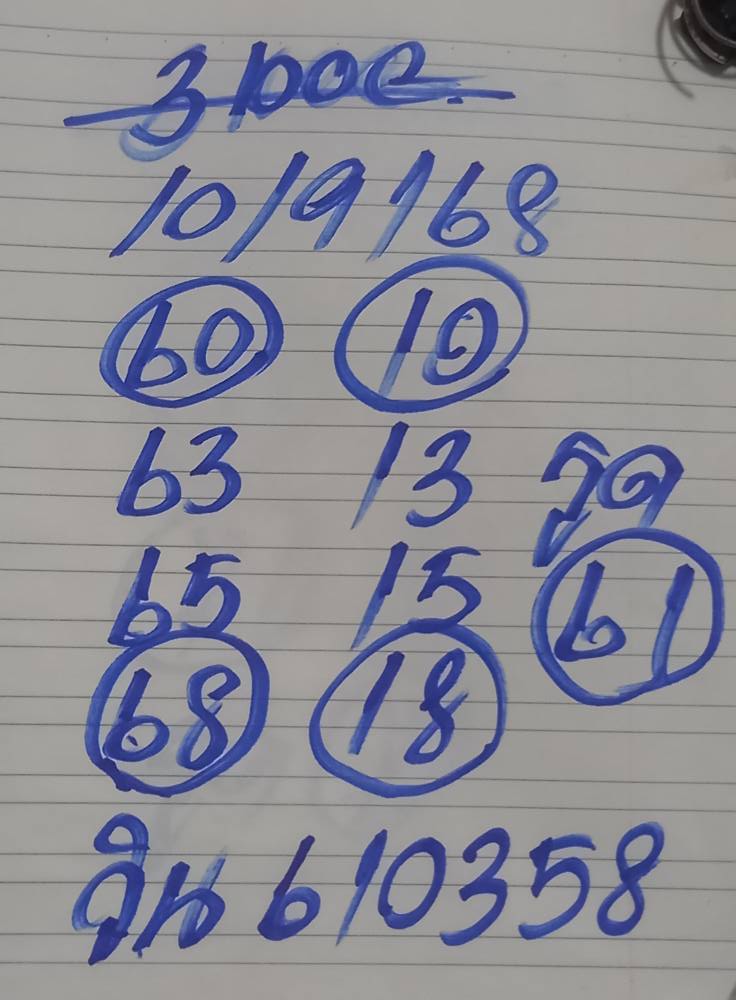 10/9/68
60 10
63 13 รูด
65 15 61
68 18
วิน 610358